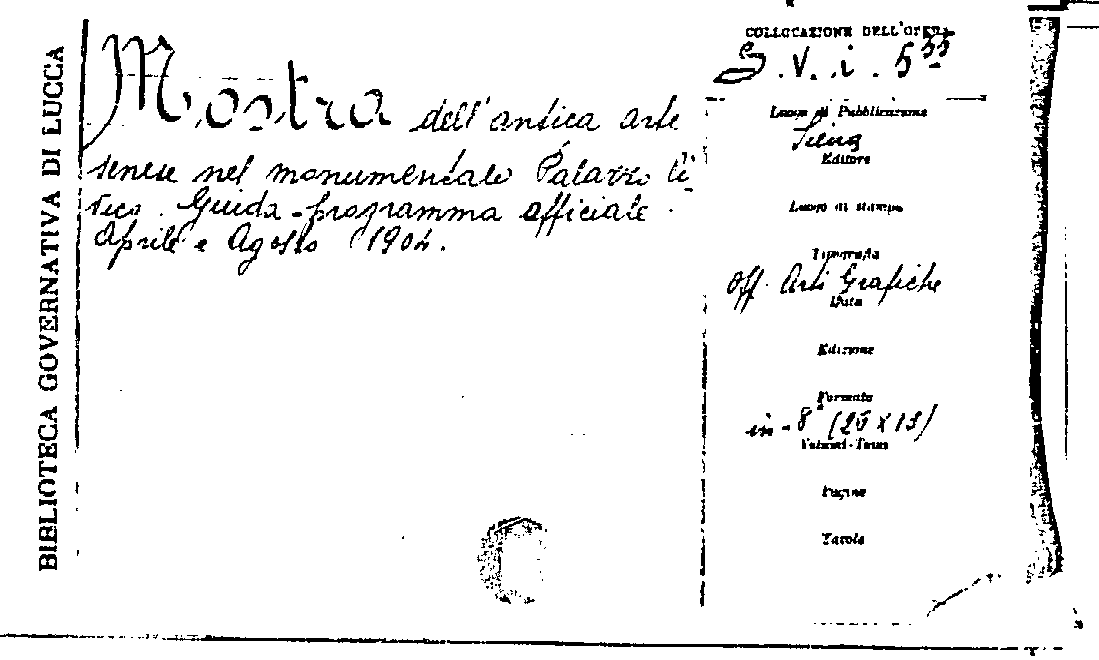 BIBLIOTECA GOVERNATIVA DI LUCCA
Mostra dell'antica arte
senese nel monumentale Palazzo
Guida-programma officiale.
Aprile e Agosto 1904.
COLLOCAZIONE DELL'OPERA
S.V.i.5
Luogo di Pubblicazione
Siena
Editore
Luogo di stampa
Tipografia
Off. Arti Grafiche
Data
Edizione
Formato
in-8° (20x13)
Volumi-Tomi
Pagine
Tavole